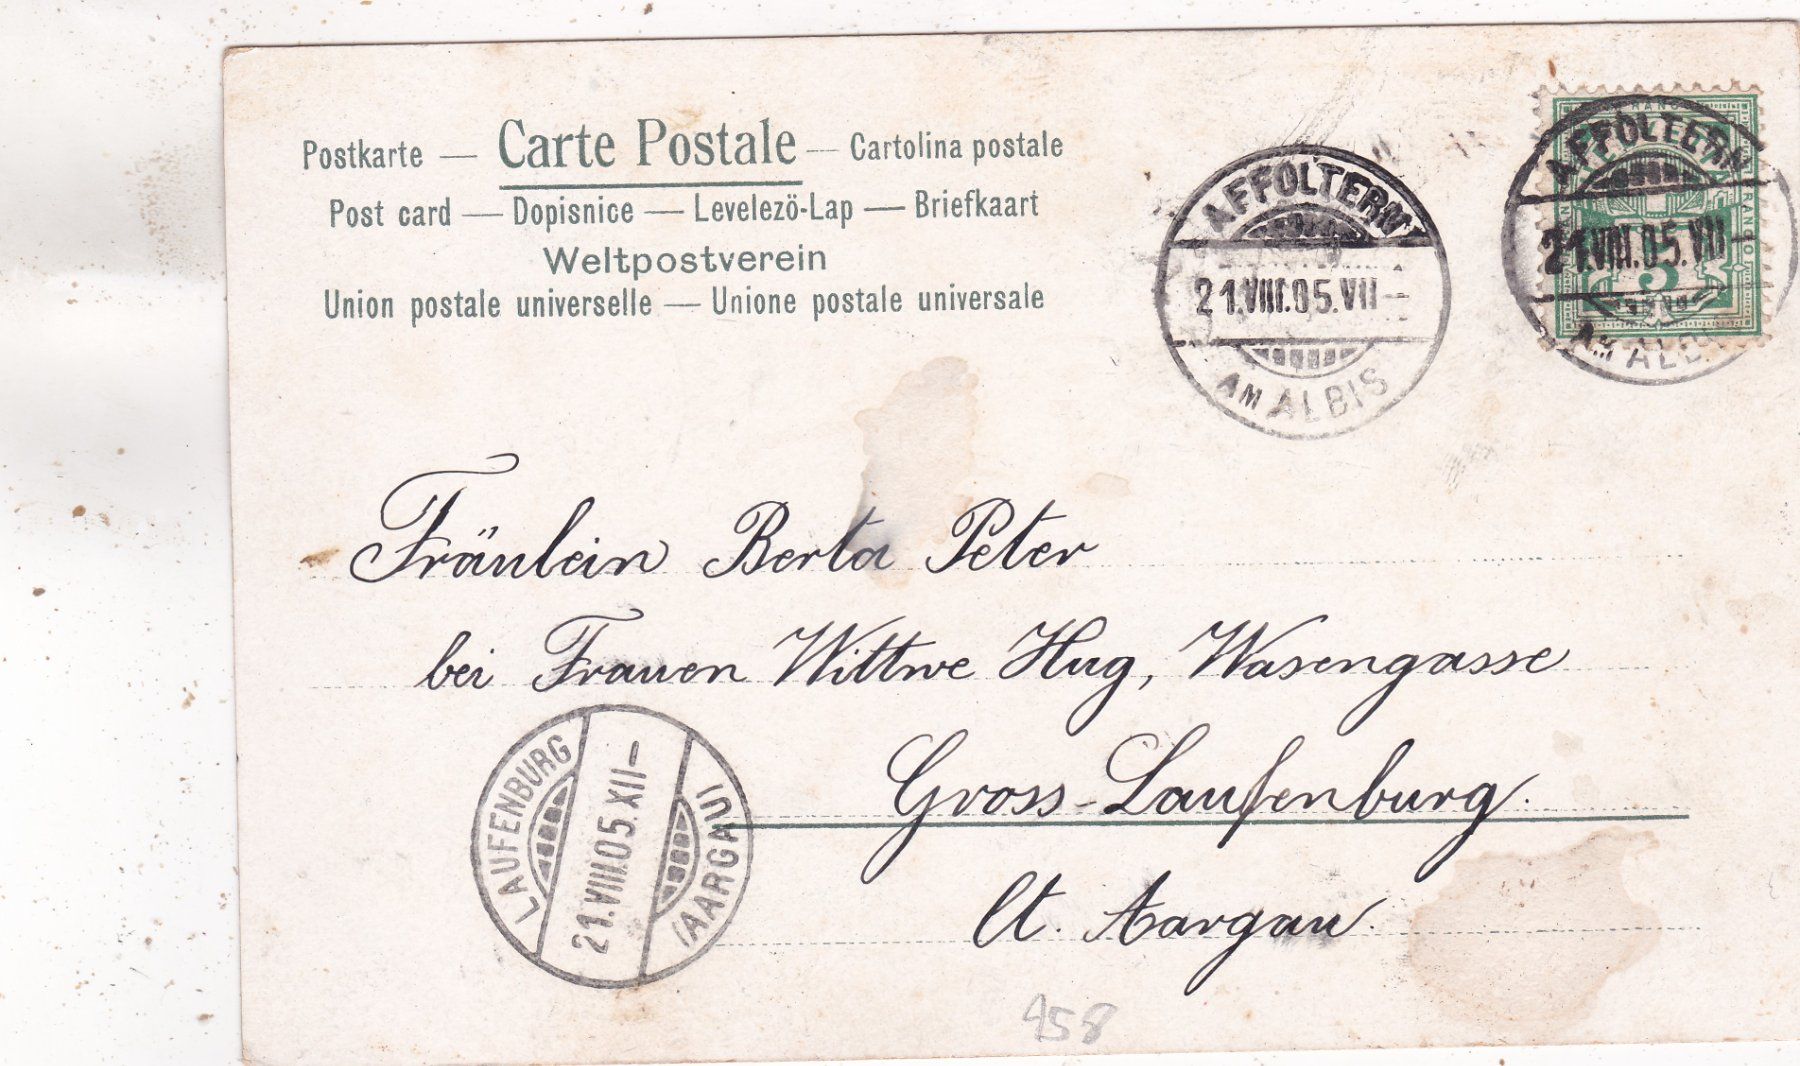 Postkarte — Carte Postale — Cartolina postale
Post card — Dopisnice — Levelezö-Lap — Briefkaart
Weltpostverein
Union postale universelle — Unione postale universale
AFFOLTERN
21.VIII.05.VII-
AM ALBIS
AFFOLTERN
21.VIII.05.VII-
AM ALBIS
5
Fräulein Berta Peter
bei Frauen Wittwe Hug, Wasengasse
Gross-Laufenburg.
Ct. Aargau.
LAUFENBURG
21.VIII.05.XII-
(AARGAU)
958